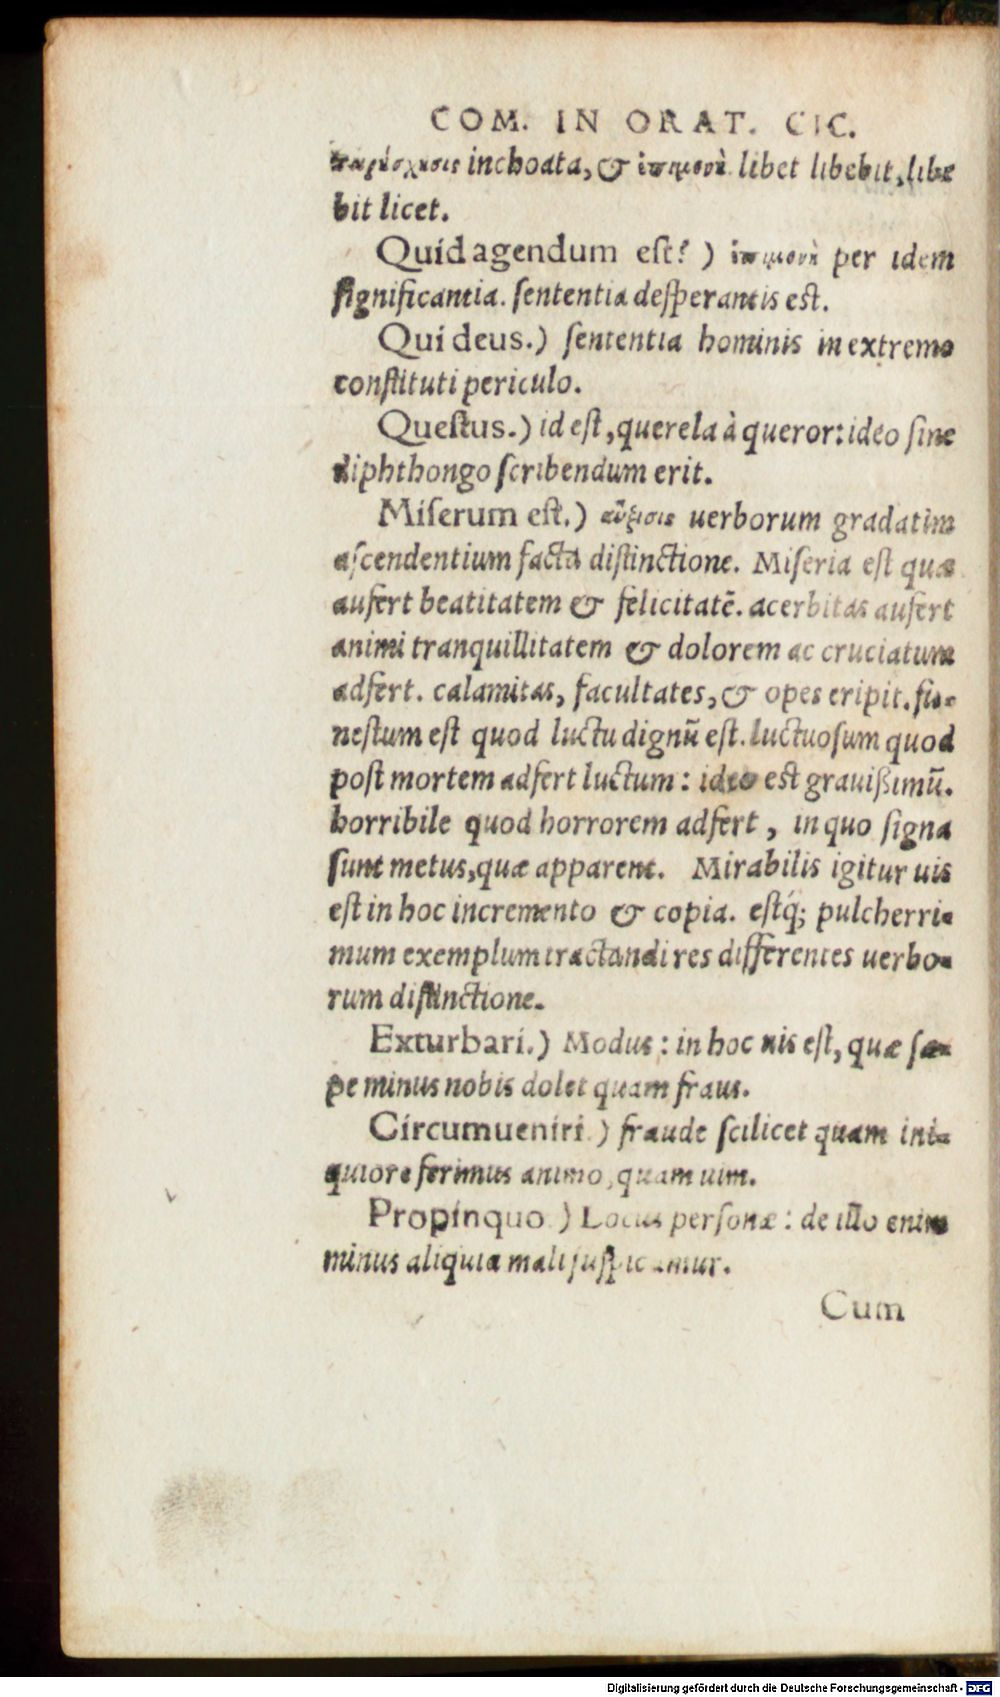 COM. IN ORAT. CIC.
inchoata, & ἐπιμονὴ libet libebit, libe
bit licet.
Quid agendum est? ) ἐπιμονὴ per idem
significantia. sententia desperantis est.
Qui deus.) sententia hominis in extremo
constituti periculo.
Questus.) id est, querela à queror: ideo sine
diphthongo scribendum erit.
Miserum est.) αὔξησις uerborum gradatìm
ascendentium facta distinctione. Miseria est quæ
aufert beatitatem & felicitatē. acerbitas aufert
animi tranquillitatem & dolorem ac cruciatum
adfert. calamitas, facultates, & opes eripit. fu-
nestum est quod luctu dignū est. luctuosum quod
post mortem adfert luctum: ideo est grauißimū.
horribile quod horrorem adfert, in quo signa
sunt metus, quæ apparent. Mirabilis igitur uis
est in hoc incremento & copia. estq́; pulcherri-
mum exemplum tractandi res differentes uerbo-
rum distinctione.
Exturbari.) Modus: in hoc uis est, quæ sæ-
pe minus nobis dolet quam fraus.
Circumueniri ) fraude scilicet quam ini-
quiore ferimus animo, quam uim.
Propinquo ) Locus personæ: de illo enim
minus aliquia mali suspicamur.
Cum
Digitalisierung gefördert durch die Deutsche Forschungsgemeinschaft - DFG